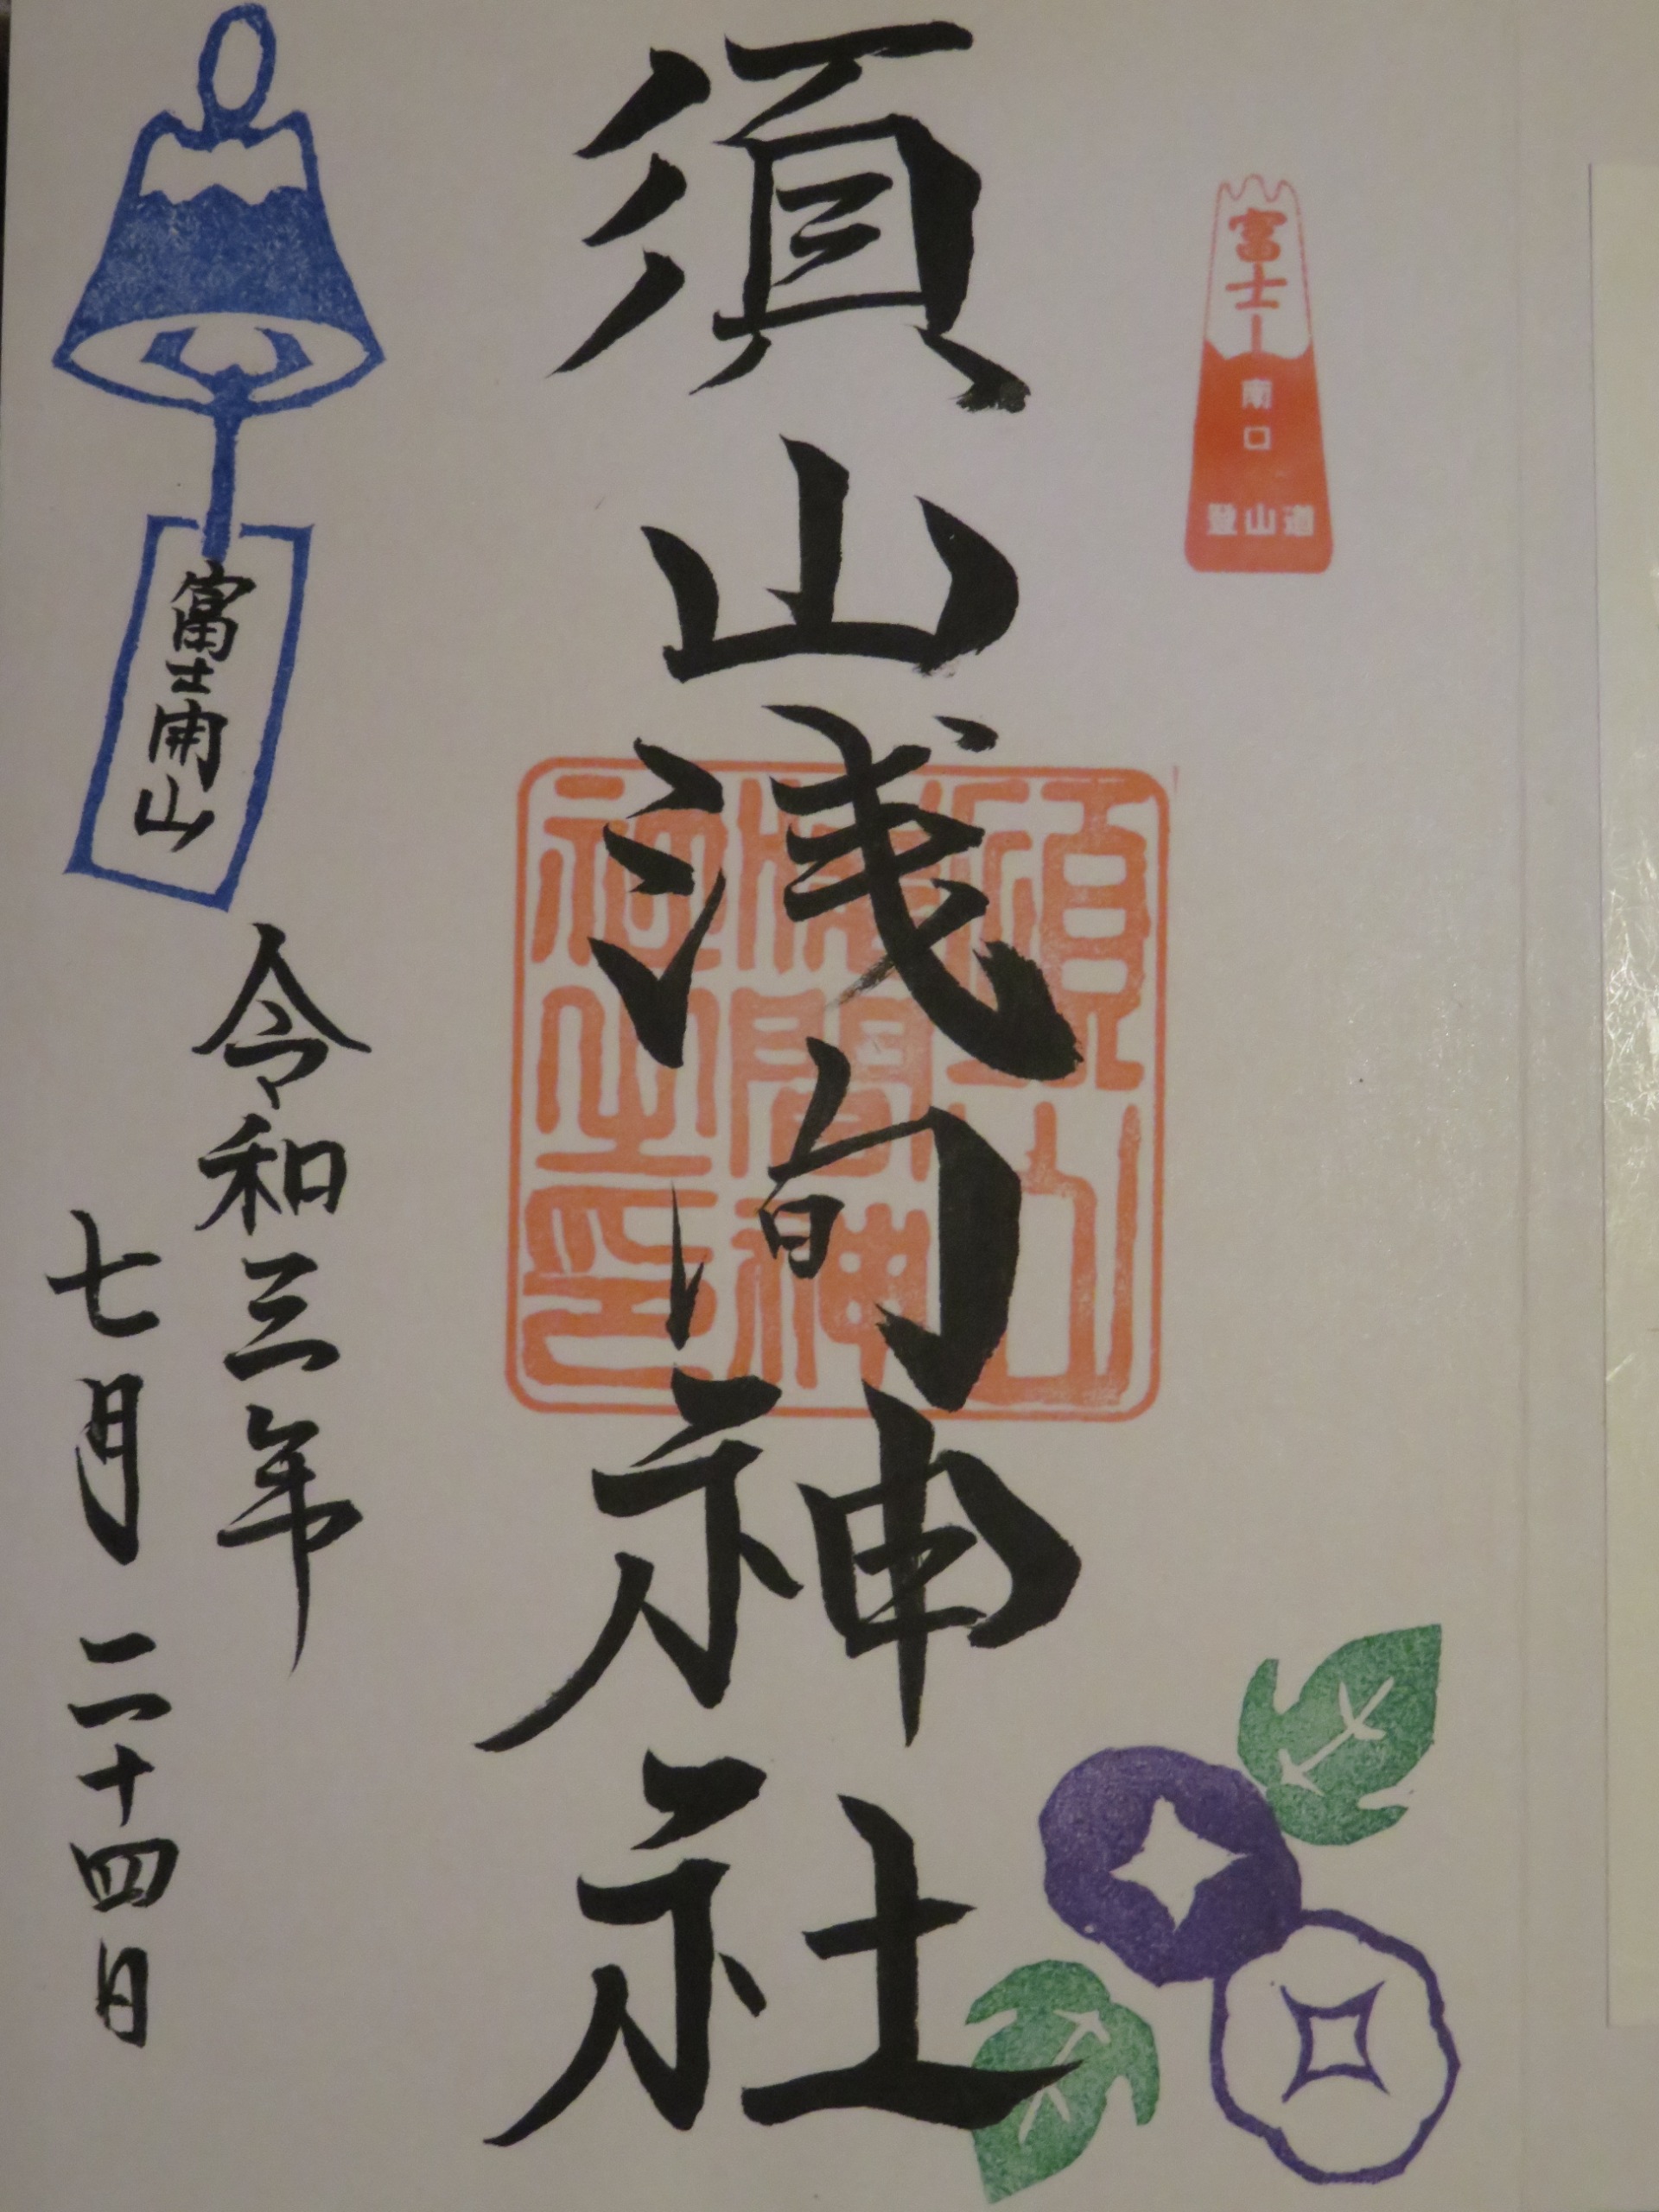 富士山
南口
登山道
須山浅间神社
須山
浅間神
社之印
富士開山
令和三年
七月二十四日